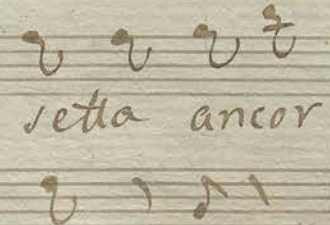 setta ancor